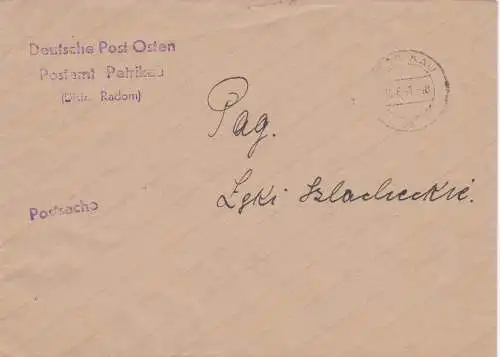 Deutsche Post Osten
Postamt Petrikau
(Distr. Radom)
Pag.
Łęki Szlacheckie.
Postsache